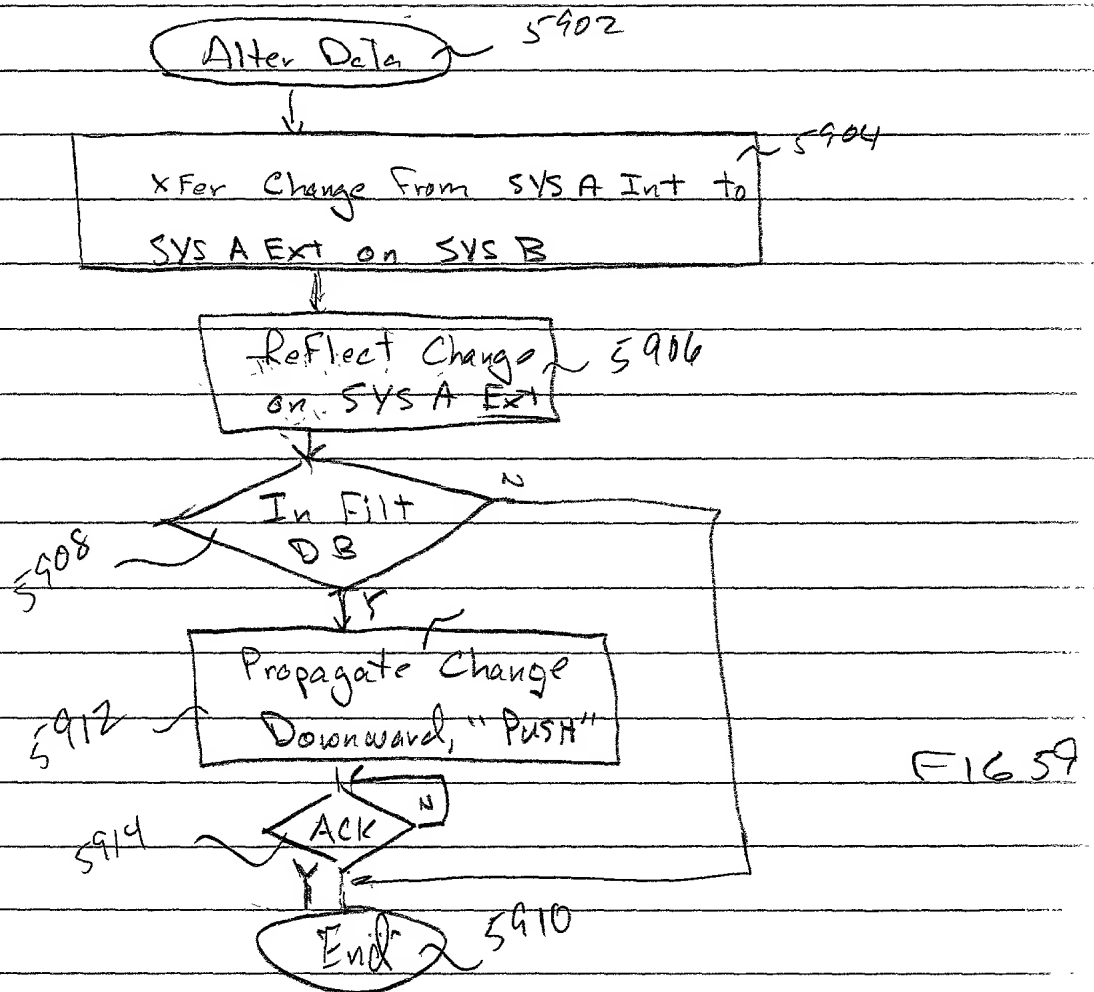 Alter Data
5902
5904
XFer Change From SYS A Int to
SYS A Ext on SYS B
Reflect Change
on SYS A Ext
5906
In Filt
DB
N
5908
Y
Propagate Change
Downward, "PUSH"
5912
FIG 59
N
ACK
5914
Y
End
5910